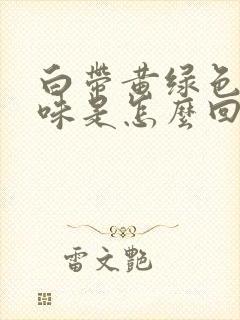 白带黄绿色
味是怎麽回
雷文艷